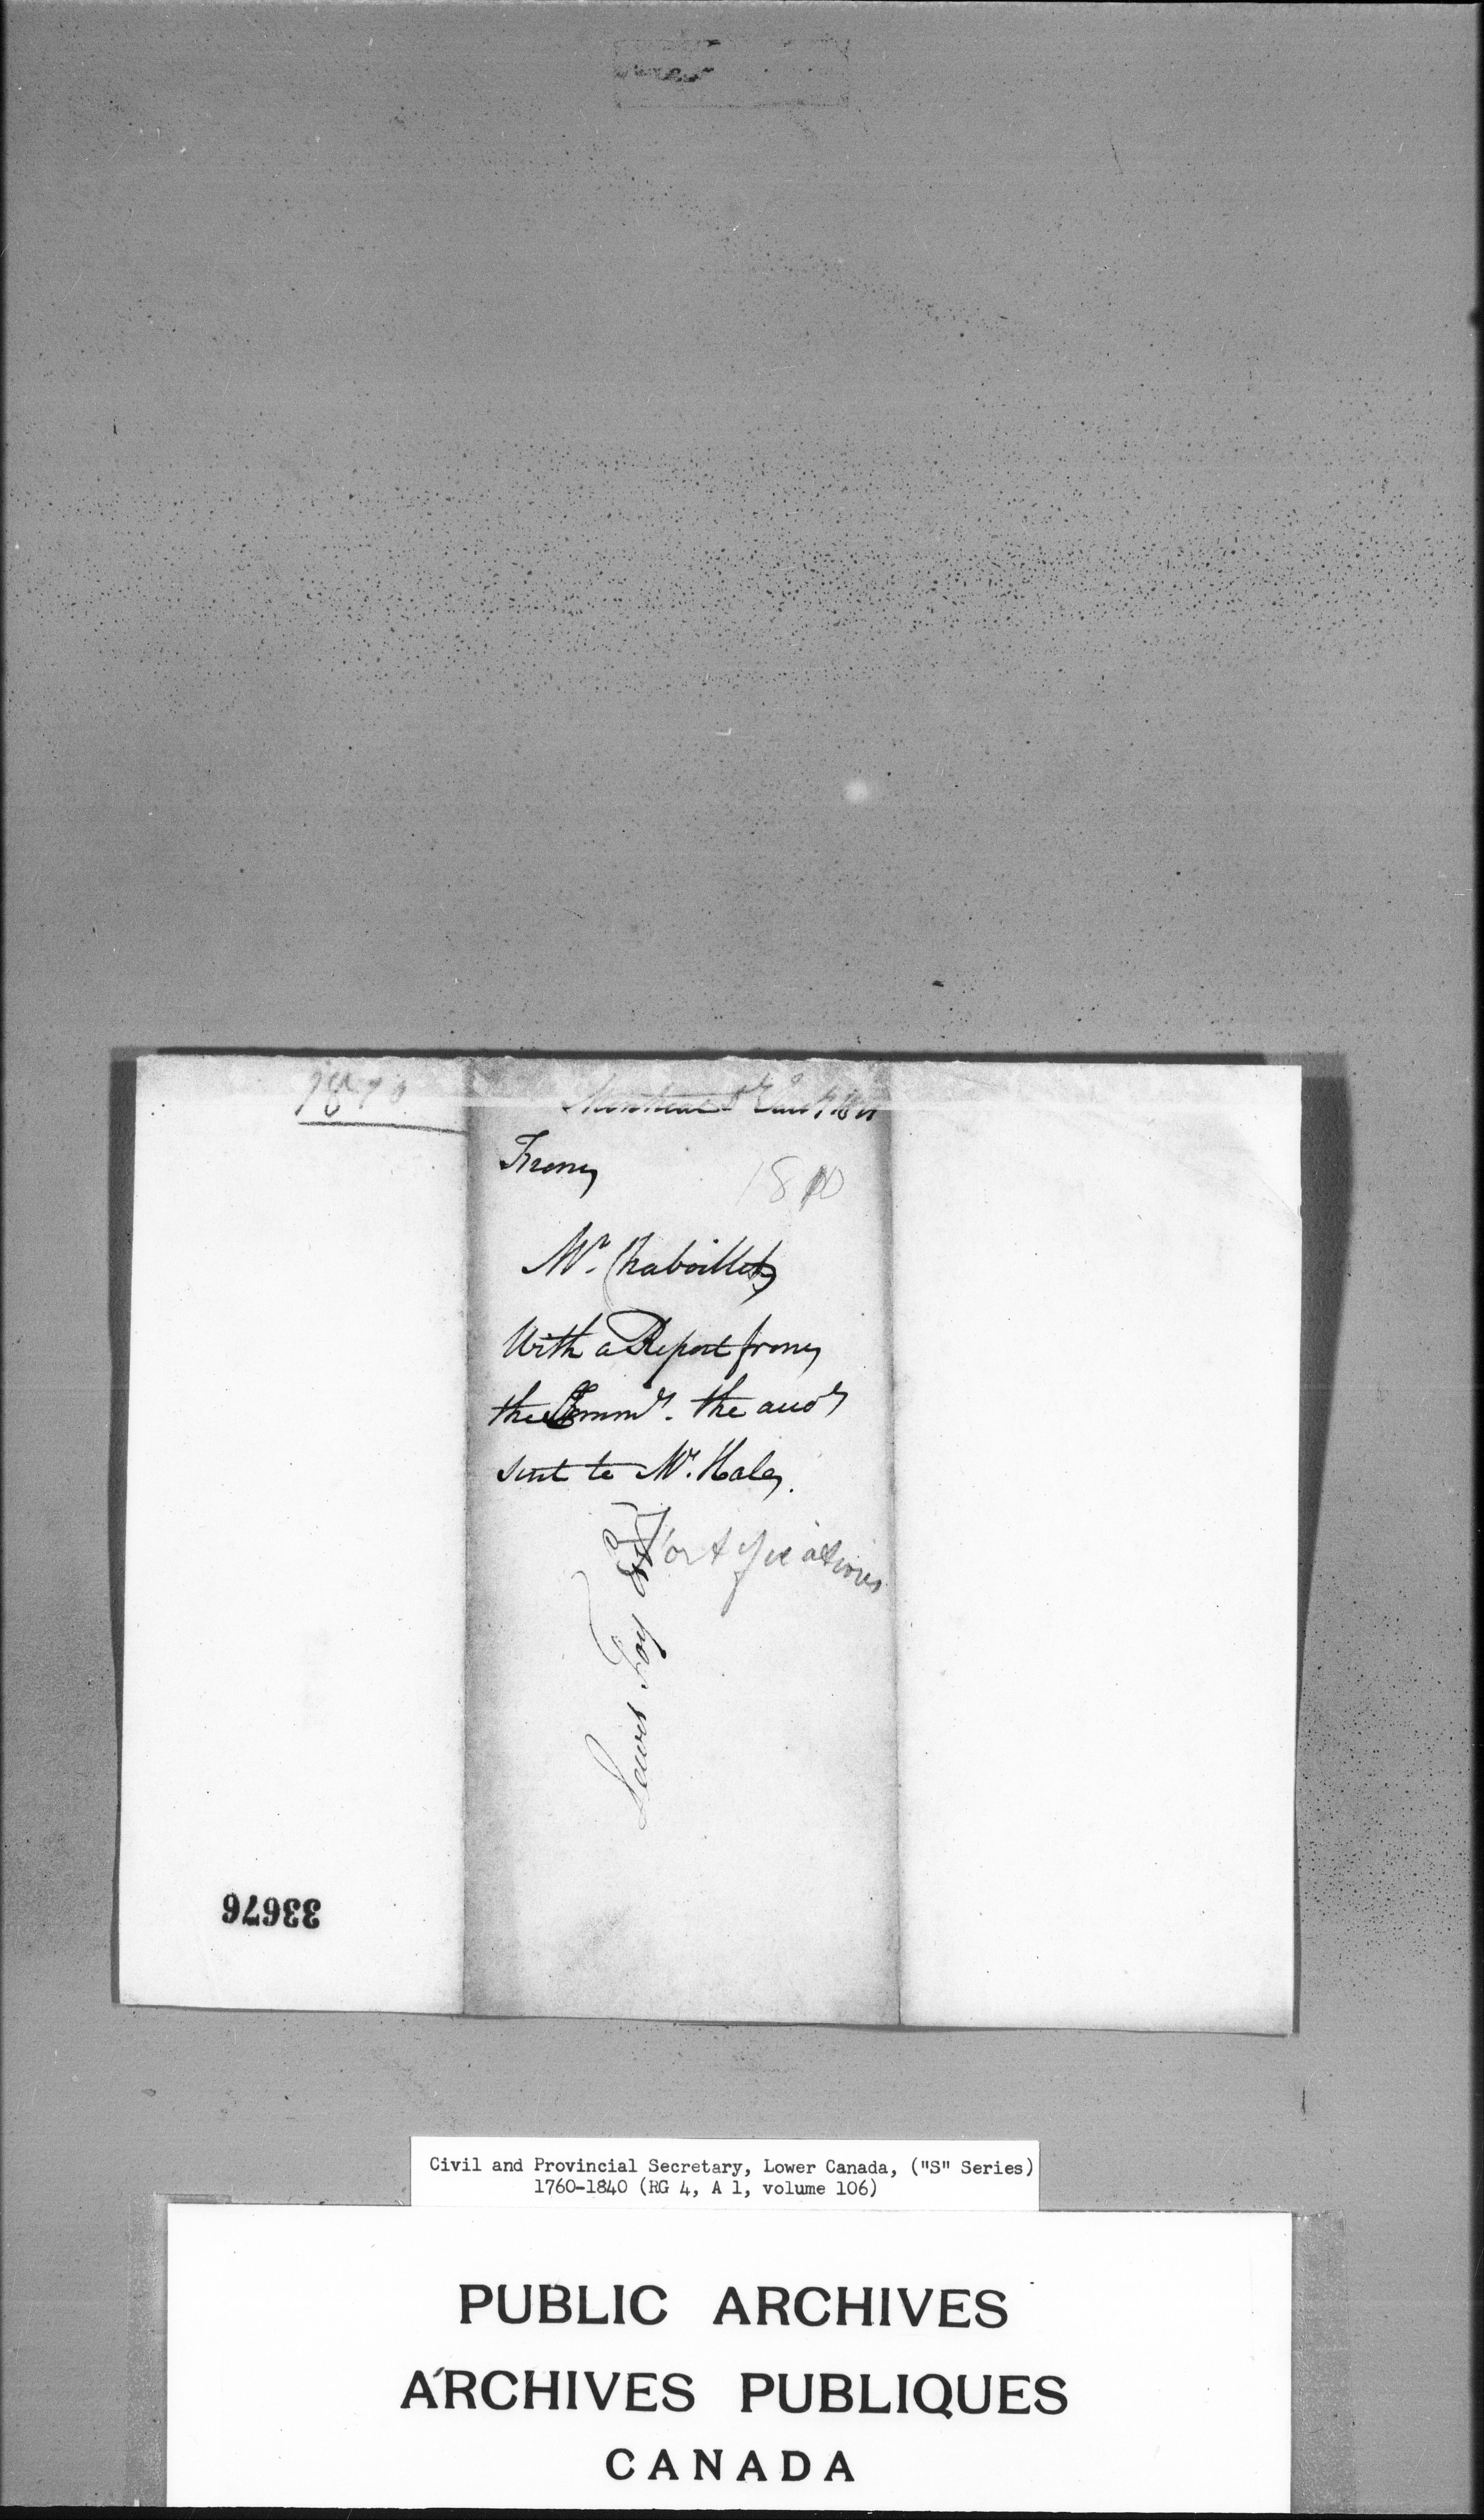 1810
Montreal
From
1810
Mr. Chaboillez
With a Report from
the Commrs. the accots
sent to Mr. Hale.
Fortifications
Lewis Foy Esqr
33676
Civil and Provincial Secretary, Lower Canada, ("S" Series)
1760-1840 (RG 4, A 1, volume 106)
PUBLIC ARCHIVES
ARCHIVES PUBLIQUES
CANADA